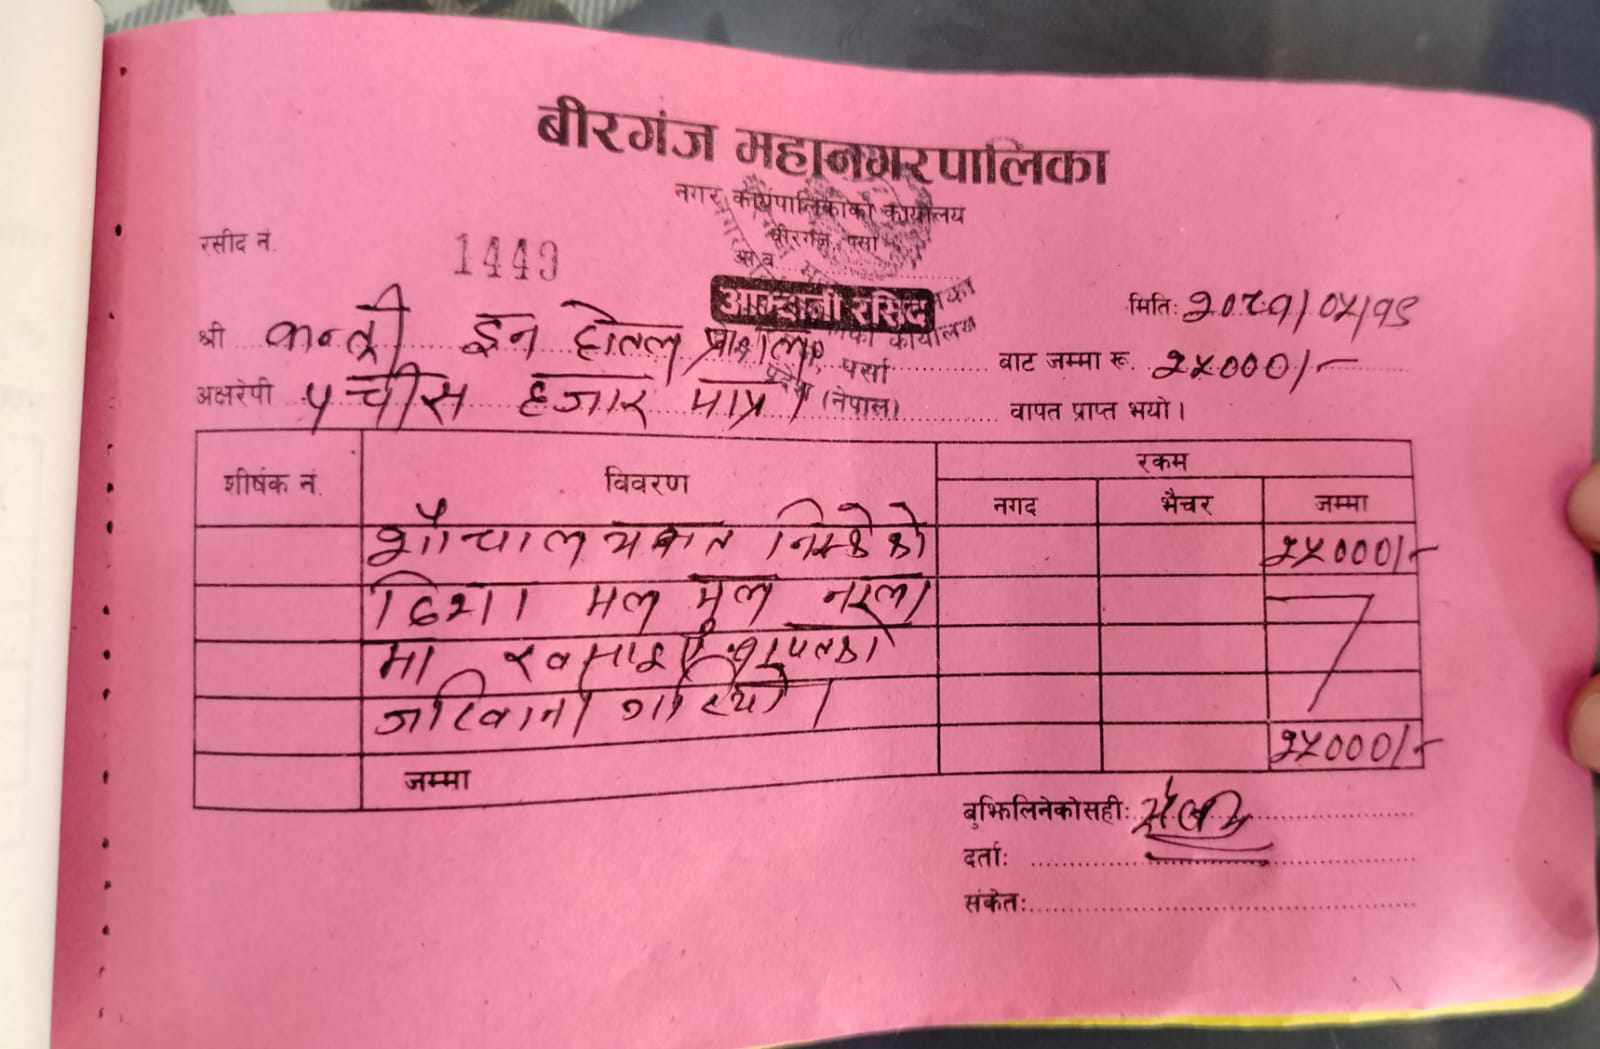 बीरगंज महानगरपालिका
नगर कार्यपालिकाको कार्यालय
बीरगंज, पर्सा
रसीद नं. 1449
आ.व.
आम्दानी रसिद
मितिः २०८१/०५/१८
श्री कन्ट्री इन होटल प्रा.लि. वाट जम्मा रू. २५०००/-
अक्षरेपी पच्चीस हजार मात्र । वापत प्राप्त भयो ।
पर्सा
(नेपाल)
शीर्षक नं. विवरण रकम
नगद भैचर जम्मा
शौचालयबाट निस्केको २५०००/-
दिशा मल मुत्र नाला
मा
जरिवाना गरियो ।
जम्मा २५०००/-
बुझिलिनेको सहीः
दर्ताः
संकेतः